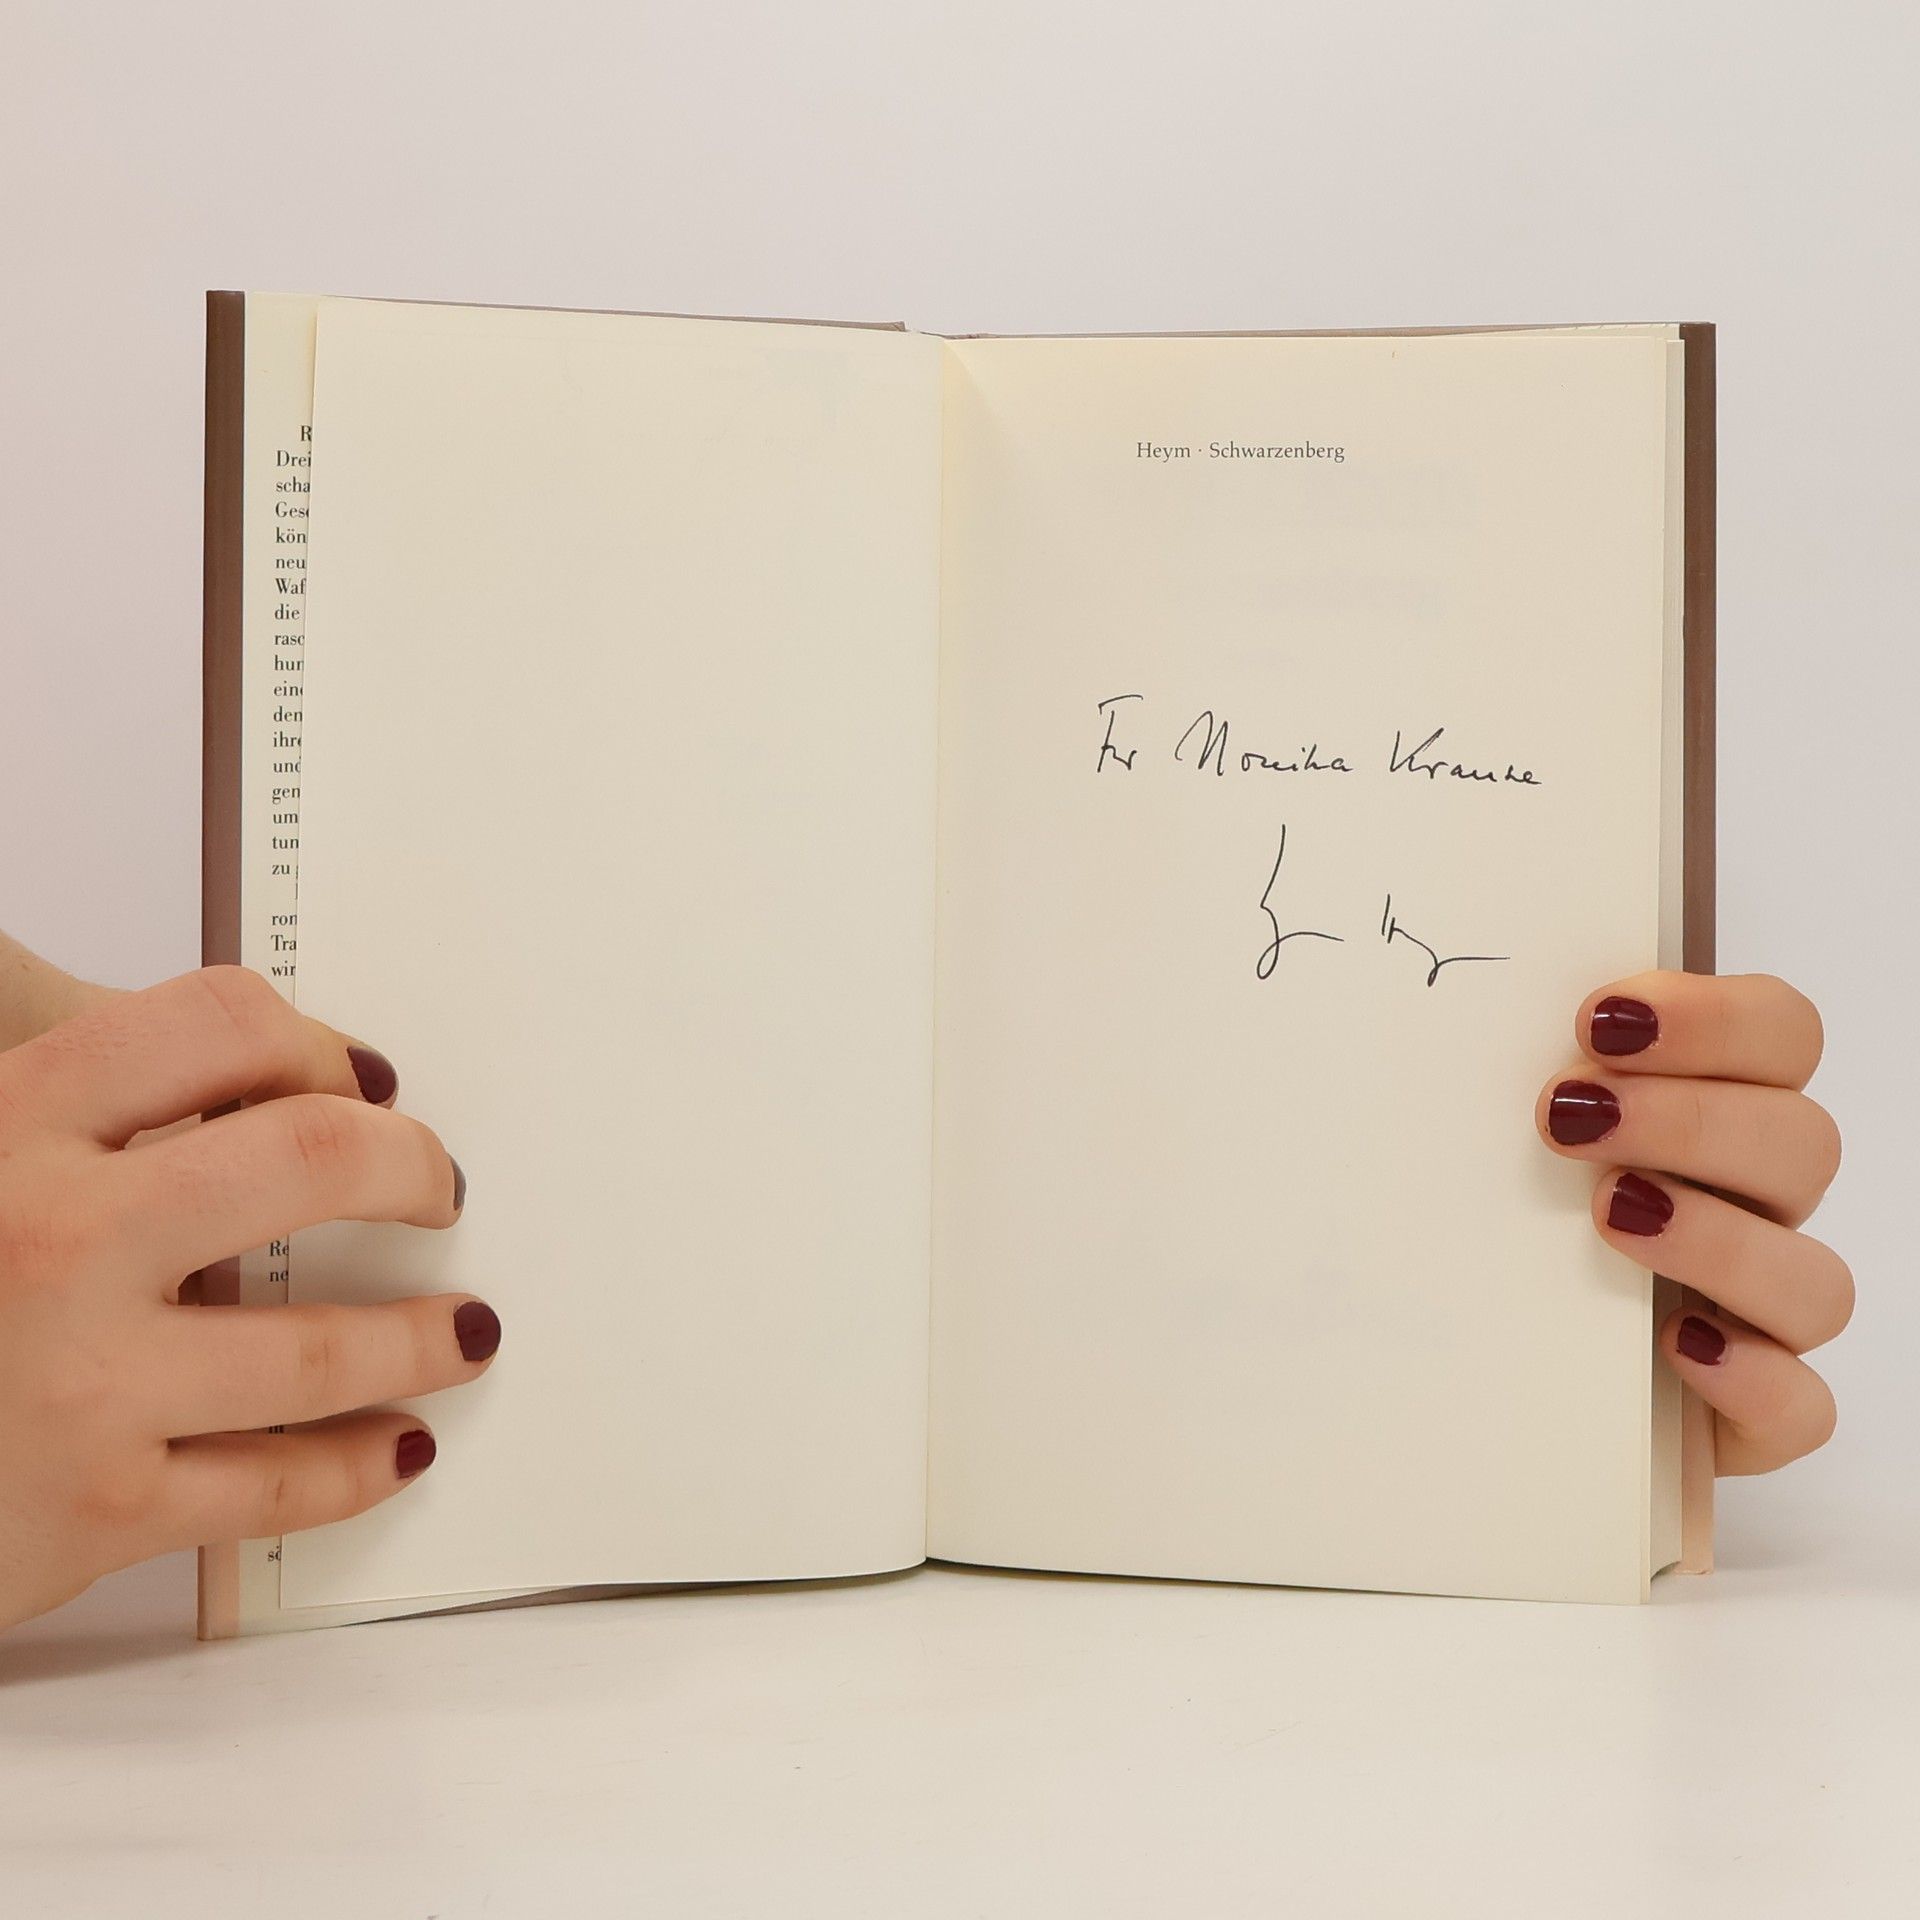 R
Drei
scha
Gese
kön
neu
Waf
die
rasc
hun
eine
den
ihre
und
gen
um
tun
zu
ron
Tra
wir
Re
ne
Heym · Schwarzenberg
Für Monika Krause